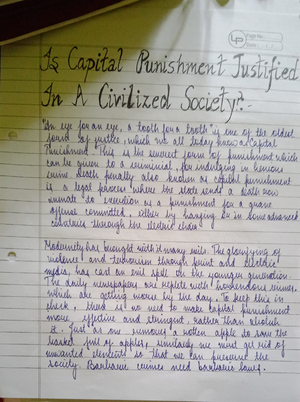 Page No.
Date
Is Capital Punishment Justified
In A Civilized Society?
"An eye for an eye, a tooth for a tooth" is one of the oldest
form of justice, which we all today know as Capital
Punishment. This is the severest form of punishment which
can be given to a criminal, for indulging in heinous
crime. Death penalty also known as capital punishment
is a legal process where the state sends a death row
inmate to execution as a punishment for a grave
offense committed, either by hanging or in some advanced
countries through the electric chair.
Modernity has brought with it many evils. The glorifying of
violence and terrorism through print and electric
media, has cast an evil spell on the younger generation.
The daily newspapers are replete with horrendous crimes,
which are getting worse by the day. To keep this in
check, there is no need to make capital punishment
more effective and stringent, rather than abolish
it. Just as one removes a rotten apple to save the
basket full of apples, similarly we must get rid of
unwanted elements so that we can preserve the
society. Barbaric crimes need barbaric laws.